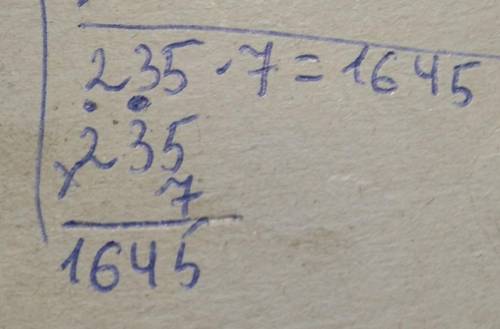 235 · 7 = 1645
235
× 7
1645